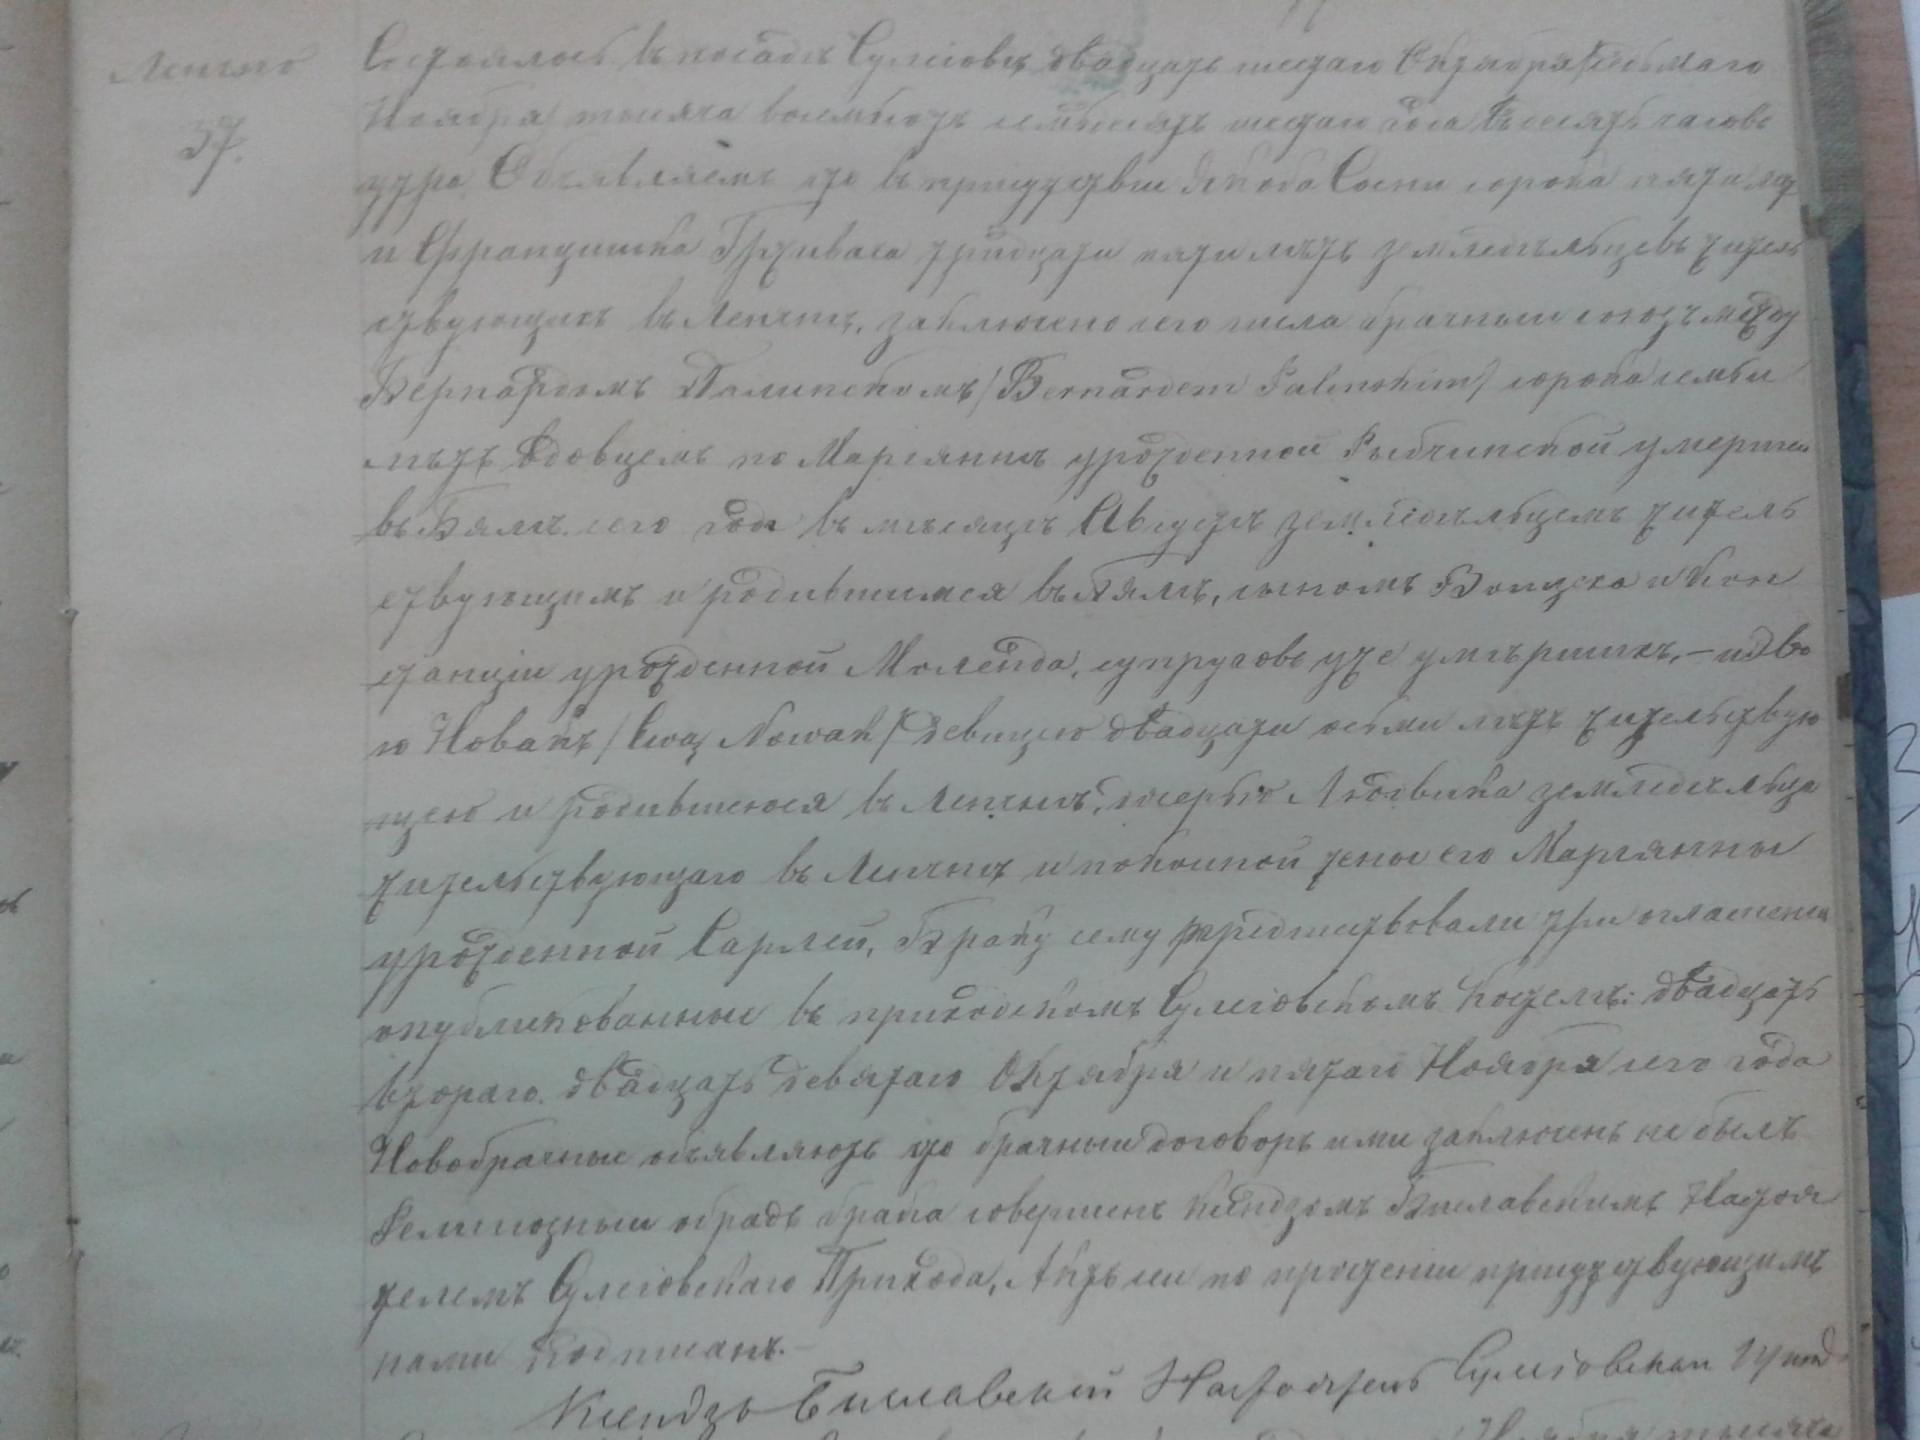 Ленчно
37.
Состоялось въ посадѣ Сулеіовѣ двадцать шестаго Октября/седьмаго
Ноября/ тысяча восемьсотъ семьдесятъ шестаго года въ десять часовъ
утра. Объявляемъ что въ присутствіи Якоба Сосни сорока пяти лѣтъ
и Францишка тридцати пяти лѣтъ земледѣльцевъ житель
ствующихъ въ Ленчнѣ, заключено сего числа брачный союзъ между
Бернардомъ Палинскомъ/Bernardem Palinskim/ сорока семьи
лѣтъ вдовцемъ по Маріяннѣ урожденной Рыбчинской умершей
въ Бялѣ сего года въ мѣсяцѣ Августѣ земледѣльцемъ житель
ствующимъ и родившимся въ Бялѣ, сыномъ Войцеха и Кон
станціи урожденной Моленда, супруговъ уже умѣршихъ, – и Эво
ю Новакъ/Ewą Nowak/ девицею двадцати осьми лѣтъ жительствую
щею и родившеюся въ Ленчнѣ, дочерью Людвика земледѣльца
жительствующаго въ Ленчнѣ и покойной жены его Маріянны
урожденной Сарлей, Браку сему предшествовали три оглашенія
опубликованные въ приходскомъ Сулеіовскомъ костелѣ: двадцать
втораго, двадцать девятаго Октября и пятаго Ноября сего года
Новобрачные объявляютъ что брачный договоръ ими заключенъ не былъ
Религіозный обрадъ брака совершенъ Ксендзомъ Настоя
телемъ Сулеіовскаго Прихода, Актъ сей по прочтеніи присутствующимъ
нами подписанъ. –
Ксендзъ Настоятель Сулеіовскаи
Ноября тысяча